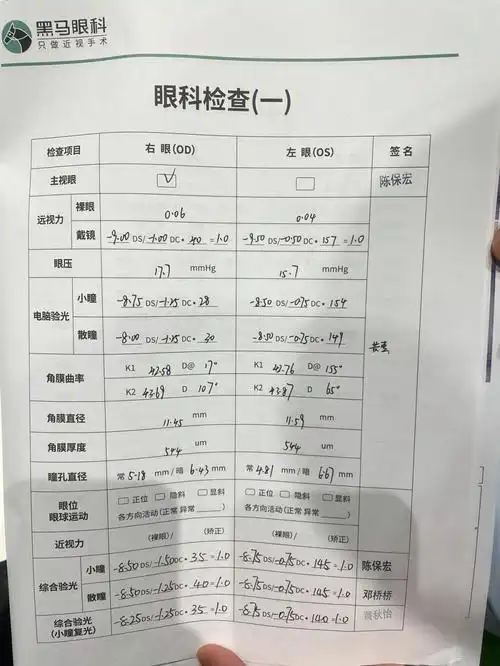 黑马眼科
只做近视手术
眼科检查(一)
检查项目 右 眼(OD) 左 眼(OS) 签 名
主视眼 ✓ 陈保宏
远视力 裸眼 0.06 0.04
戴镜 -9.00 DS/-1.00 DC* 40 =1.0 -9.50 DS/-0.50 DC* 157 =1.0
眼压 17.7 mmHg 15.7 mmHg
电脑验光 小瞳 -8.75 DS/-1.25 DC* 28 -8.50 DS/-0.75 DC* 154
散瞳 -8.00 DS/-1.25 DC* 30 -8.50 DS/-0.75 DC* 149
角膜曲率 K1 42.58 D@ 17° K1 42.76 D@ 155°
K2 43.69 D 107° K2 43.87 D 65°
角膜直径 11.45 mm 11.59 mm
角膜厚度 544 um 544 um
瞳孔直径 常 5.18 mm / 暗 6.43 mm 常 4.81 mm / 暗 6.67 mm
眼位 眼球运动 正位 隐斜 显斜 正位 隐斜 显斜
各方向活动(正常 异常______) 各方向活动(正常 异常______)
近视力 (裸眼)/ (矫正) (裸眼)/ (矫正)
综合验光 小瞳 -8.50 DS/-1.50 DC* 35 =1.0 -8.75 DS/-0.75 DC* 145 =1.0 陈保宏
散瞳 -8.50 DS/-1.25 DC* 40 =1.0 -8.75 DS/-0.75 DC* 145 =1.0 邓桥桥
综合验光 (小瞳复光) -8.25 DS/-1.25 DC* 35 =1.0 -8.75 DS/-0.75 DC* 140 =1.0 秋怡